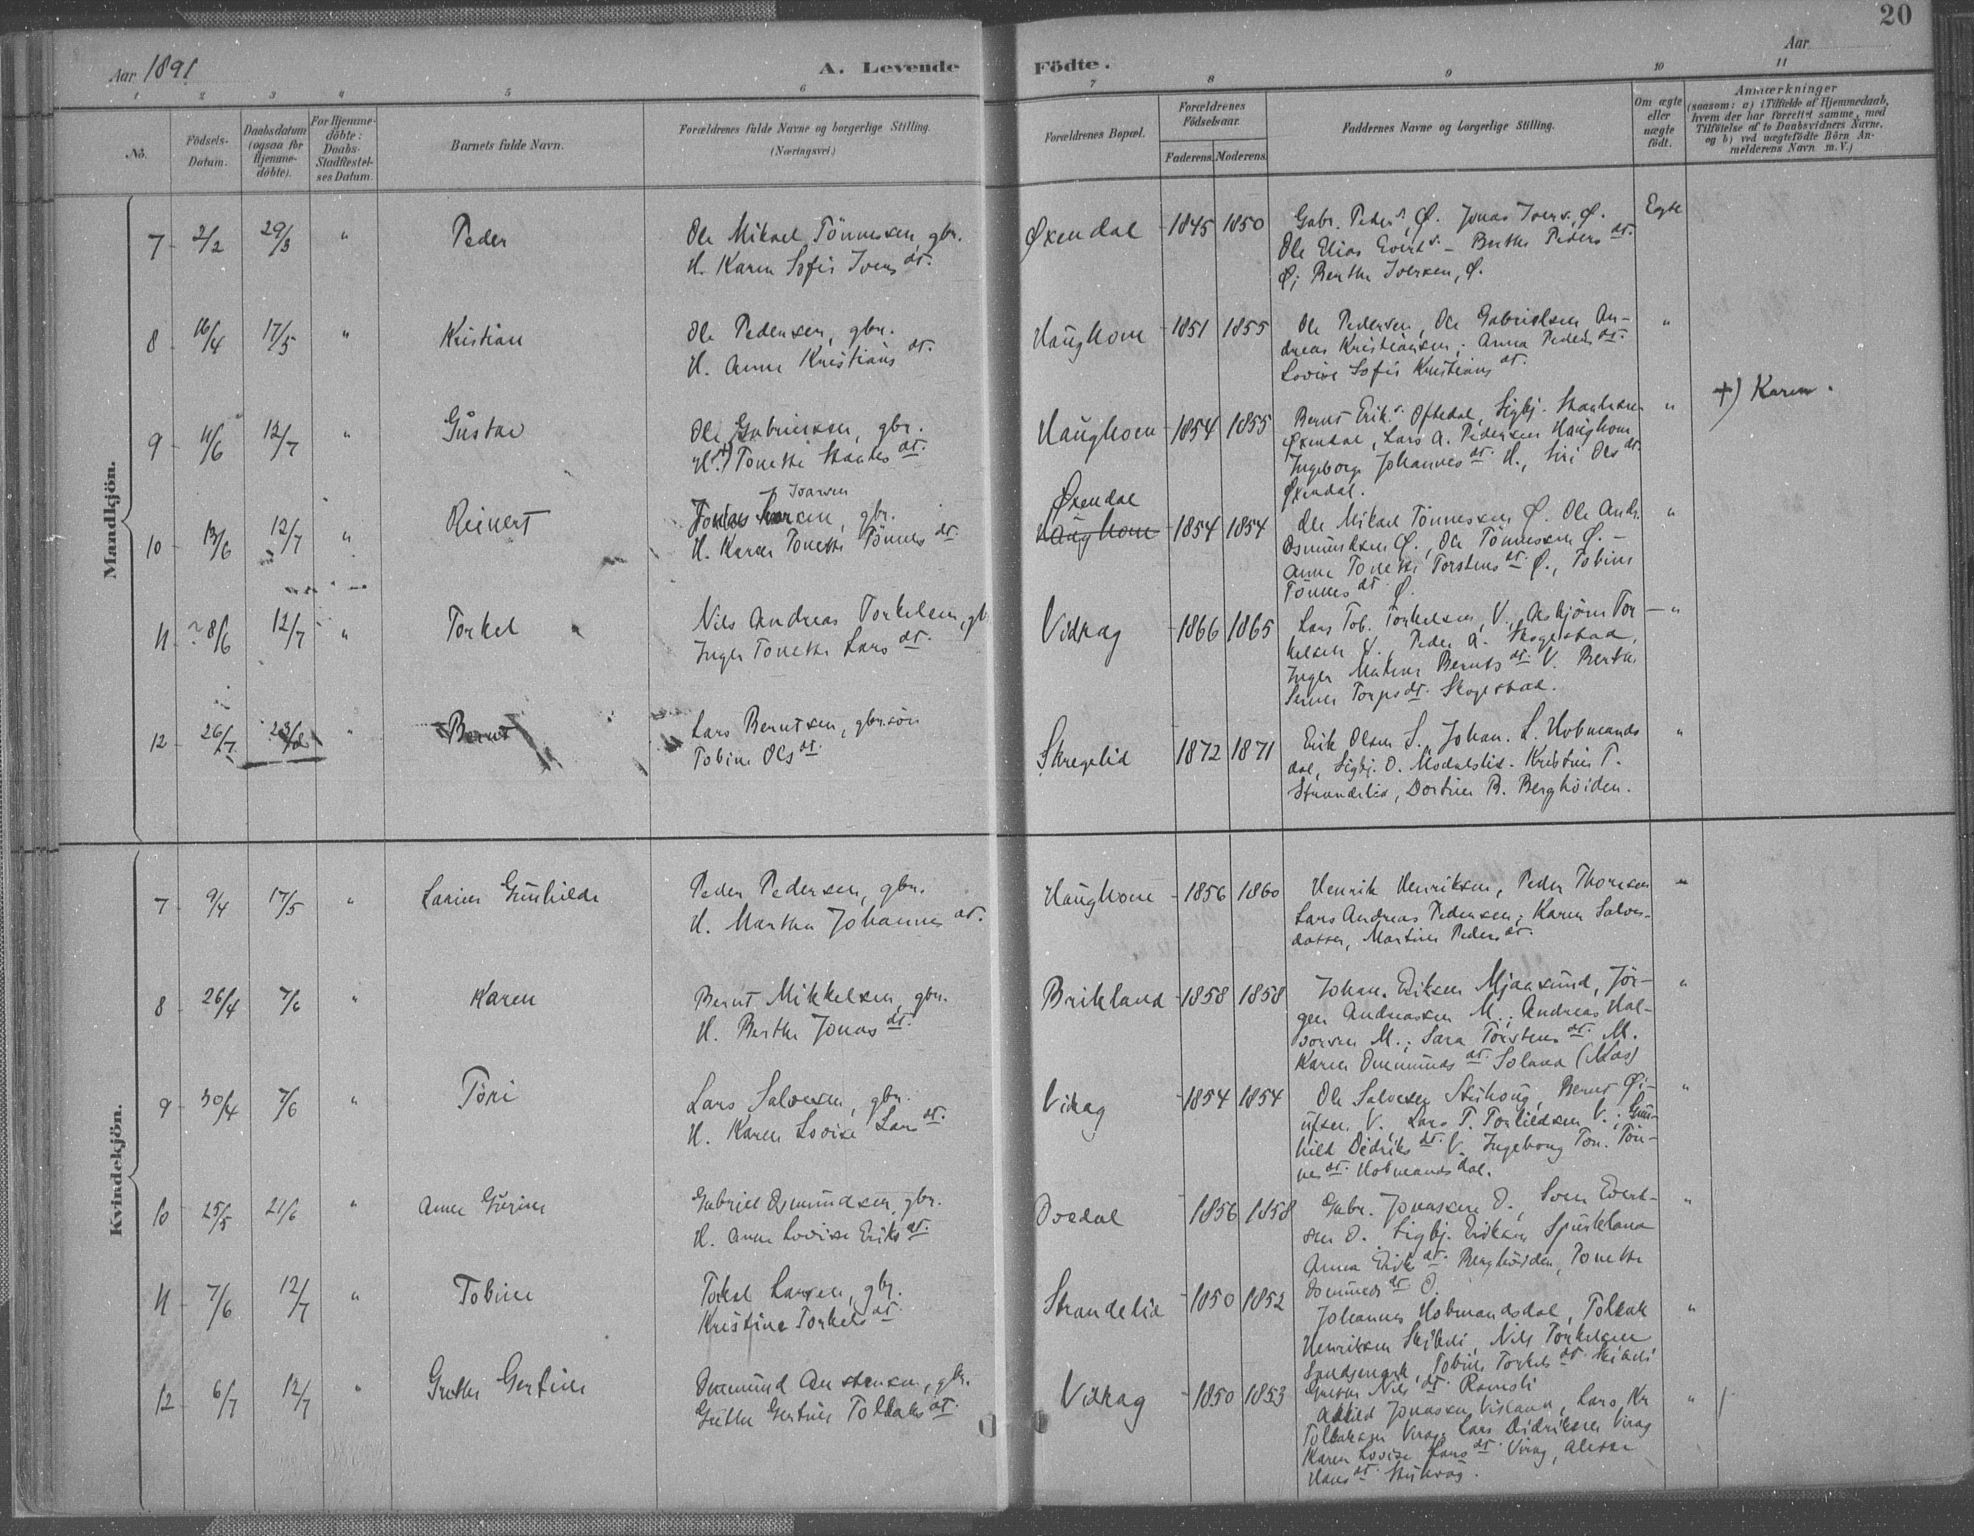 20
Aar 1891
A. Levende
Födte.
Aar
1 2 3 4 5 6 7 8 9 10 11
No.
Födsels-Datum.
Daabsdatum (ogsaa for Hjemme-döbte).
For Hjemme-döbte: Daabs-Stadfæstel-ses Datum.
Barnets fulde Navn.
Forældrenes fulde Navne og borgerlige Stilling.
(Næringsvei.)
Forældrenes Bopæl.
Forældrenes Födselsaar.
Faderens. Moderens.
Faddernes Navne og borgerlige Stilling.
Om ægte eller uægte födt.
Anmærkninger
(saasom: a) i Tilfælde af Hjemmedaab,
hvem der har forrettet samme, med
Tilföielse af to Daabsvidners Navne,
og b) ved uægtefödte Börn An-
melderens Navn m. V.)
Mandkjön.
7 2/2 29/3 " Peder
Ole Mikael Tönnessen, gbr.
H. Karen Sofie Ivers dt.
Øxendal 1845 1850
Gabr. Peders., Ø. Jonas Ivers., Ø.
Ole Elias Everts. - Berthe Peders dt.
Ø; Berthe Iversen, Ø.
Egte
8 16/4 17/5 " Kristian
Ole Pedersen, gbr.
H. Anne Kristians dt.
Haughom 1851 1855
Ole Pedersen, Ole Gabrielsen, An-
dreas Kristiansen; Anna Peders dt.
Lovise Sofie Kristians dt.
"
9 11/6 12/7 " Gustav
Ole Gabrielsen, gbr.
H. +) Tonette Staales dt.
Haughom 1854 1855
Bernt Eriks. Oftedal, Sigbj.
Øxendal, Lars A. Pedersen Haughom
Ingeborg Johannes dt. H., Siri Ols dt.
Øxendal.
" +) Karen.
10 13/6 12/7 " Reinert
Ivarsen
Jonas, gbr.
H. Karen Tonette Tönnes dt.
Øxendal
Haughom 1854 1854
Ole Mikael Tönnessen Ø. Ole Andr.
Osmundsen Ø., Ole Tönnessen Ø. -
Anne Tonette Torstens dt. Ø., Tobine
Tönnes dt. Ø.
"
11 8/6 12/7 " Torkel
Nils Andreas Torkelsen, gb.
Inger Tonette Lars dt.
Vidrag 1866 1865
Lars Tob. Torkelsen, V., Asbjörn Tor-
kelsen V., Peder A. Skogestad,
Inger Bernts dt. V. Berthe
Serine dt. Skogestad.
"
12 26/7 23/8 " Bernt
Lars Berntsen, gbr.sön
Tobine Ols dt.
Skregelid 1872 1871
Erik Olsen S., Johan. L. Hobmands-
dal, Sigbj. O. Mydalslid. Kristine T.
Strandelid, Dortine B. Berghöiden.
"
Kvindekjön.
7 9/4 17/5 " Larine Gunhilde
Peder Pedersen, gbr.
H. Martha Johannes dt.
Haughom 1856 1860
Henrik Henriksen, Peder Thoresen
Lars Andreas Pedersen; Karen Salves-
datter, Martine Peders dt.
"
8 26/4 7/6 " Karen
Bernt Mikkelsen, gbr.
H. Berthe Jonas dt.
Brikland 1858 1858
Johan. Eriksen Mjaasund, Jör-
gen Andreassen M.; Andreas Hal-
vorsen M.; Sara Torstens dt. M.
Karen Ommunds dt. Soland (Aas)
"
9 30/4 7/6 " Töri
Lars Salvesen, gbr.
H. Karen Lovise Lars dt.
Virag 1854 1854
Ole Salvesen, Bernt Øi-
ufsen V., Lars T. Torkildsen V.; Gun-
hild Didriks dt. V. Ingeborg Ton. Tön-
nes dt. Hobmandsdal.
"
10 25/5 21/6 " Anne Gurine
Gabriel Osmundsen, gbr.
H. Anne Lovise Eriks dt.
Ovedal 1856 1858
Gabr. Jonassen O., Sven Evert-
sen O. Sigbj. Eriksen Spirkland
Anna Eriks dt. Berghöiden, Tonette
Ommunds dt. O.
"
11 7/6 12/7 " Tobine
Torkel Larsen, gbr.
Kristine Torkels dt.
Strandelid 1850 1852
Johannes Hobmandsdal, Tollak
Henriksen Skibeli, Nils Torkelsen
Sandsmark, Tobine Torkels dt. Skibeli
Grethe Nils dt. Ramsli
"
12 6/7 12/7 " Grethe Gertine
Ommund Austensen, gbr.
Grethe Gertine Tollaks dt.
Vidrag 1850 1853
Jonassen Visland, Lars Kr.
Tollaksen Virag, Lars Didriksen Virag
Karen Lovise Lars dt. Virag, Alette
Hans dt.
"